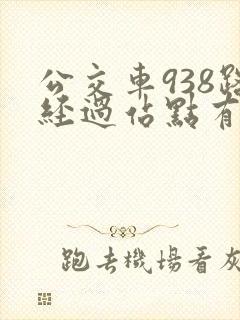 公交車938路
經過佔點有
跑去機場看灰